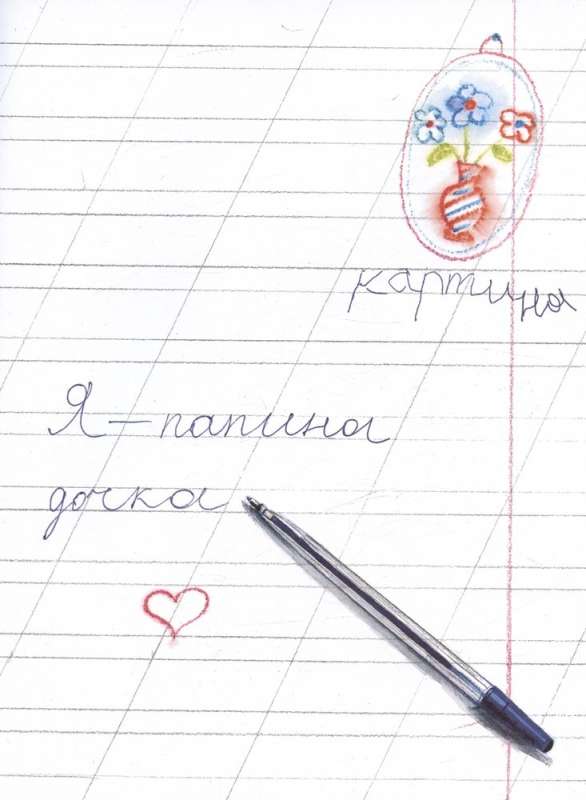 картина
Я – папина
дочка